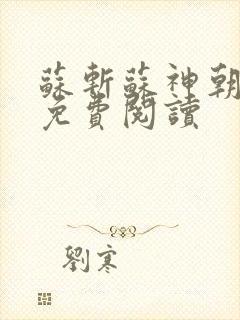 蘇斬蘇神朝
免費閱讀
劉寒